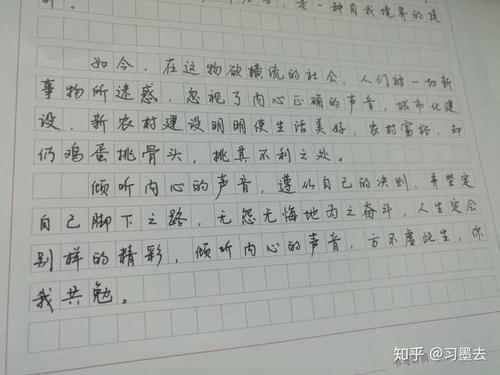 是一种自我境界的提
如今，在这物欲横流的社会，人们被一切新
事物所迷惑，忽视了内心正确的声音，城市化建
设，新农村建设明明使生活美好，农村富裕，却
仍鸡蛋挑骨头，挑其不利之处。
倾听内心的声音，遵从自己的决则，并坚定
自己脚下之路，无怨无悔地为之奋斗，人生定会
别样的精彩，倾听内心的声音，方不虚此生，你
我共勉。
知乎 @习墨去